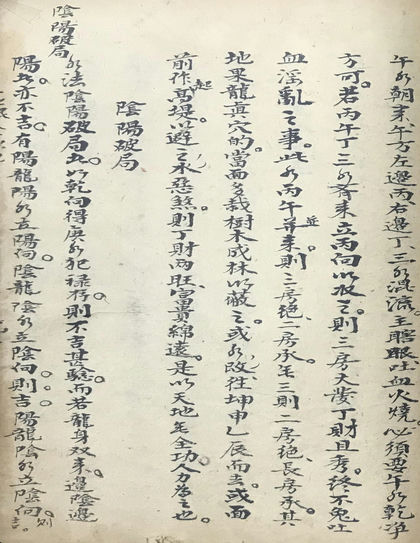 午水朝来午方左邊丙右邊丁三水混流主瞎眼吐血火燒必須要午水乾净
方可若丙午丁三水齊来立丙向以收之則三房大發丁財且秀終不免吐
血淫亂之事此水丙午并来則三房絶二房承年三則二房絶長房承其
地果龍真穴的當面多栽樹木成林以蔽之或水改往坤申乙辰而去或面
前作起高堤以避之水惡煞則丁財兩旺富貴綿遠是以天地年全功人力為之也
陰陽破局
水法陰陽破局如以乾向得庚水犯禄存則不吉甚驗而若龍身双来邊陰邊
陽亦不吉有陽龍陽水立陽向陰龍陰水立陰向則吉陽龍陰水立陰向則吉
陰陽破局